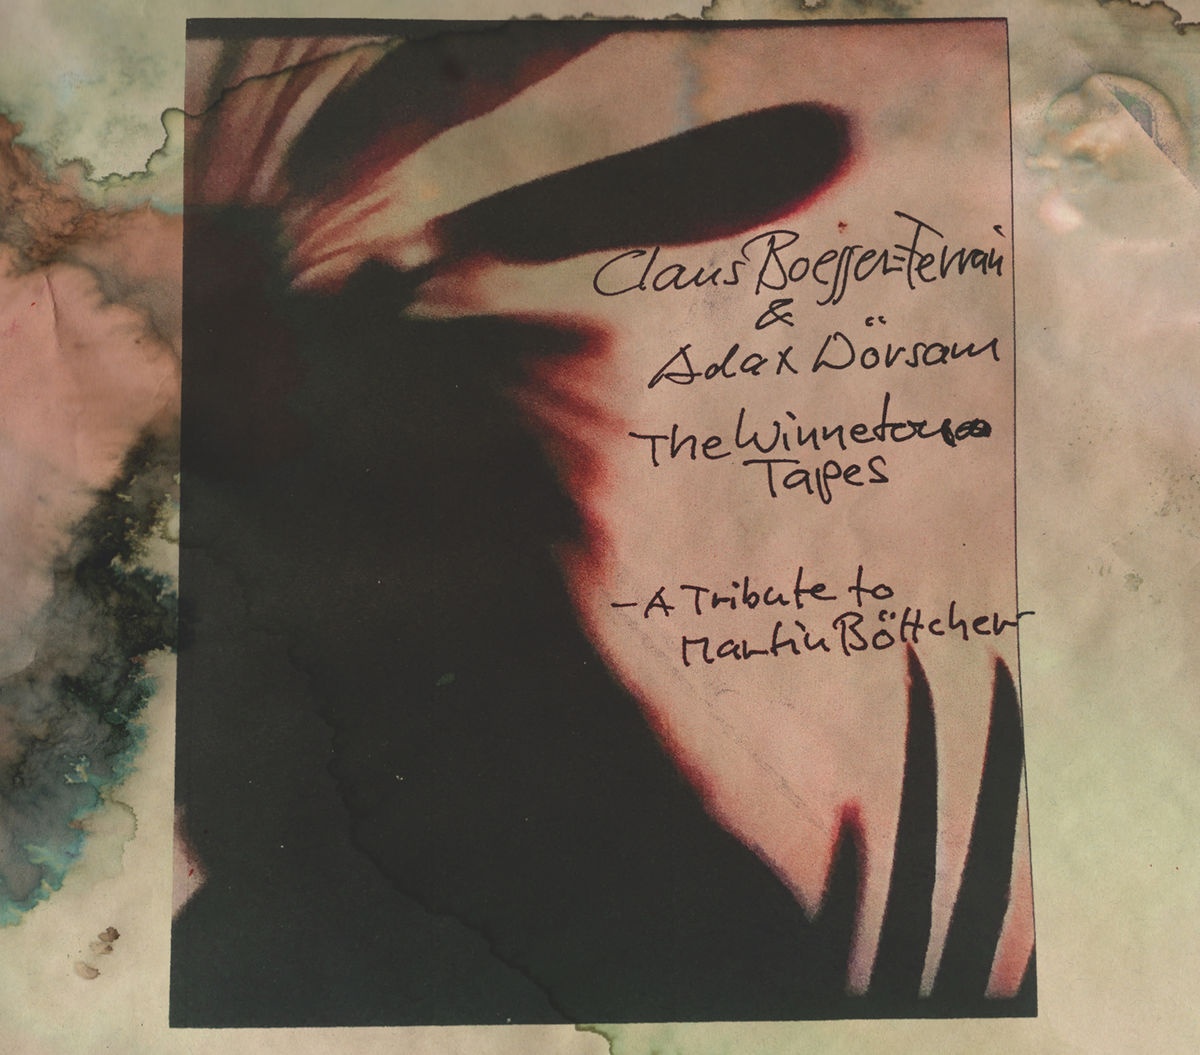 Claus Boesser-Ferrari
&
Adax Dörsam
The Winnetou
Tapes
- A Tribute to
Martin Böttcher